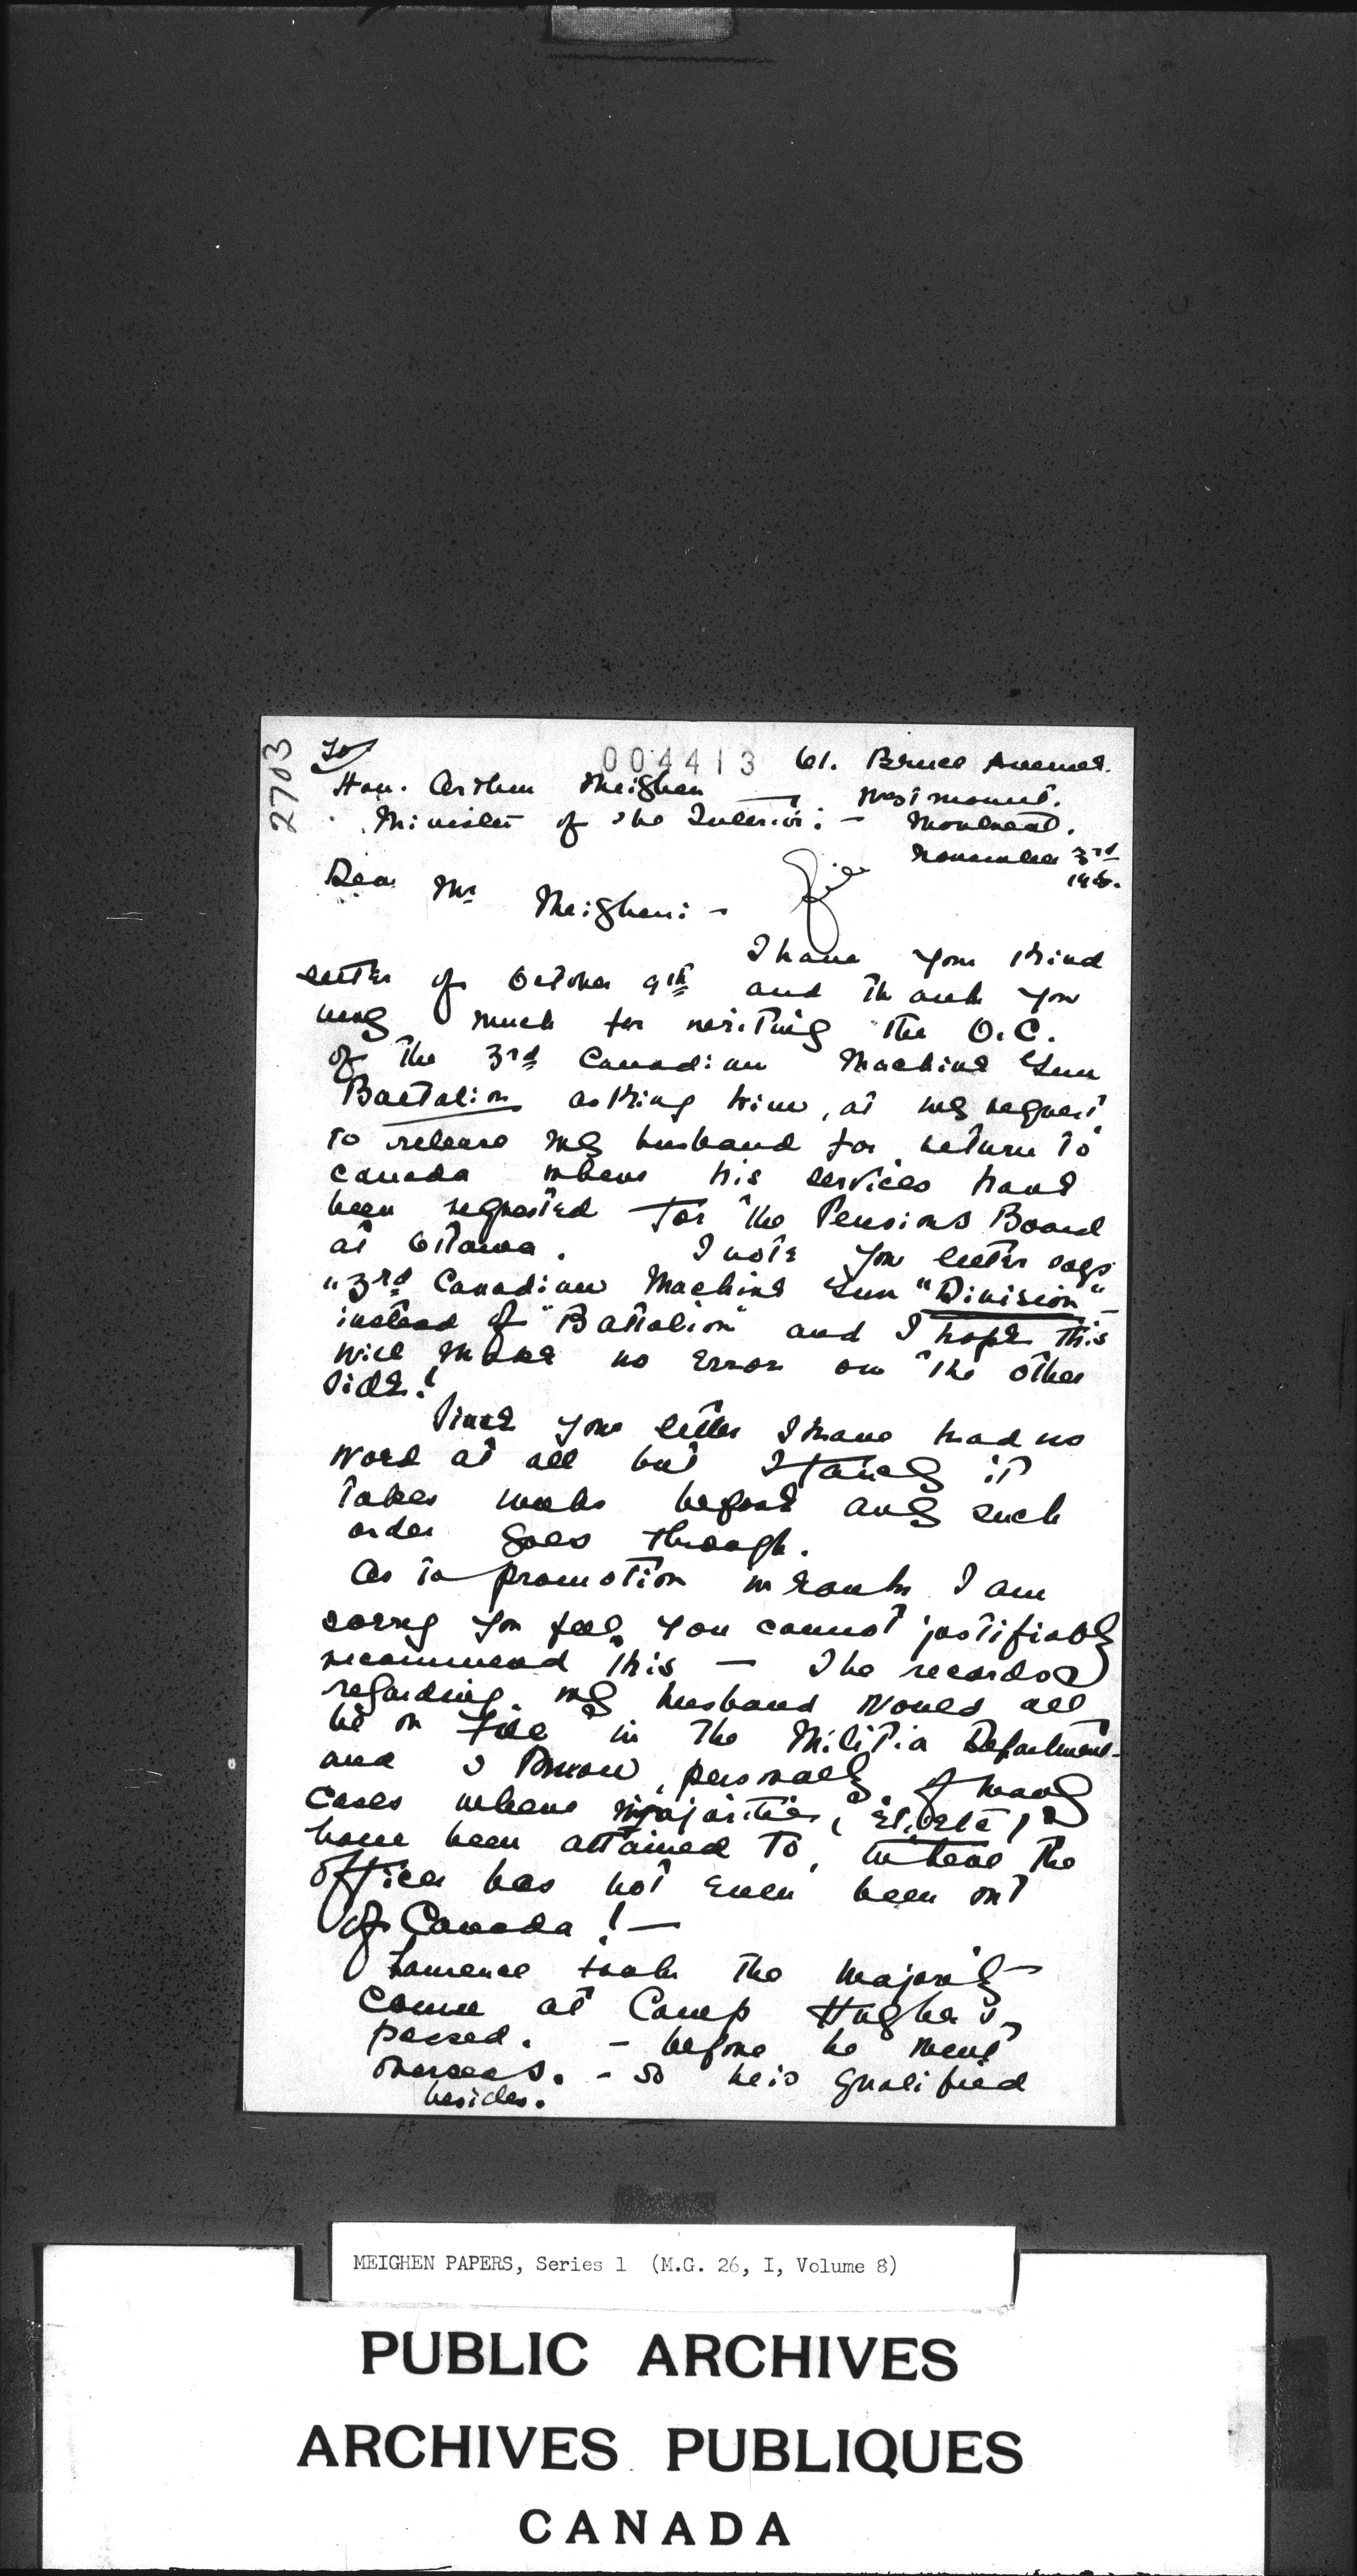 2703
004413
To/
61. Bruce Avenue.
Hon. Arthur Meighen — Westmount.
Minister of the Interior: — Montreal.
November 3rd
Dear Mr Meighen: — File
I have your kind
letter of October 9th and thank you
very much for writing the O.C.
of the 3rd Canadian Machine Gun
Battalion asking him, at my request,
to release my husband for return to
Canada where his services have
been requested for the Pensions Board
at Ottawa. I note your letter says
"3rd Canadian Machine Gun "Division" —
instead of "Battalion" and I hope this
will make no error on the other
side!
Since your letter I have had no
word at all but I fancy it
takes weeks before any such
order goes through.
As to promotion in rank I am
sorry you feel you cannot justifiably
recommend this — The records
regarding my husband would all
be on file in the Militia Department —
and I know, personally, of many
cases where majorities, (etc. etc.)
have been attained to, where the
officer has not even been out
of Canada! —
Lawrence took the majority
course at Camp Hughes,
passed. — before he went
overseas. — So he is qualified
besides.
MEIGHEN PAPERS, Series 1 (M.G. 26, I, Volume 8)
PUBLIC ARCHIVES
ARCHIVES PUBLIQUES
CANADA